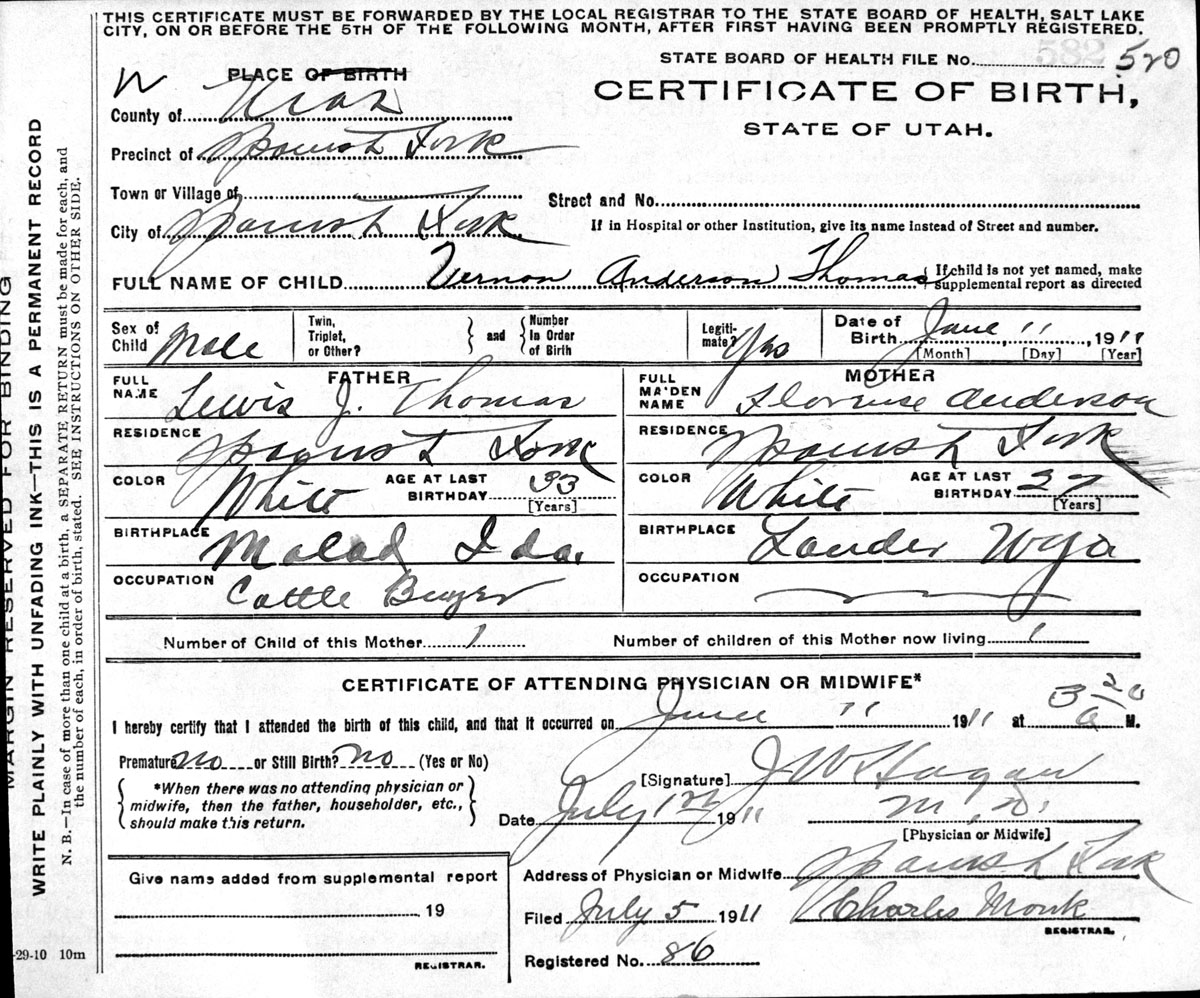 THIS CERTIFICATE MUST BE FORWARDED BY THE LOCAL REGISTRAR TO THE STATE BOARD OF HEALTH, SALT LAKE
CITY, ON OR BEFORE THE 5TH OF THE FOLLOWING MONTH, AFTER FIRST HAVING BEEN PROMPTLY REGISTERED.
STATE BOARD OF HEALTH FILE No. 520
PLACE OF BIRTH
CERTIFICATE OF BIRTH,
County of Utah
STATE OF UTAH.
Precinct of Spanish Fork
Town or Village of
Street and No.
City of Spanish Fork
If in Hospital or other Institution, give its name instead of Street and number.
FULL NAME OF CHILD Vernon Anderson Thomas { If child is not yet named, make supplemental report as directed
Sex of Child Male Twin, Triplet, or Other? } and { Number in Order of Birth Legitimate? Yes Date of Birth June, 11, 1911
[Month] [Day] [Year]
FATHER MOTHER
FULL NAME Lewis J. Thomas FULL MAIDEN NAME Florence Anderson
RESIDENCE Spanish Fork RESIDENCE Spanish Fork
COLOR White AGE AT LAST BIRTHDAY 33 [Years] COLOR White AGE AT LAST BIRTHDAY 27 [Years]
BIRTHPLACE Malad Ida. BIRTHPLACE Lander Wyo
OCCUPATION Cattle Buyer OCCUPATION
Number of Child of this Mother 1 Number of children of this Mother now living 1
CERTIFICATE OF ATTENDING PHYSICIAN OR MIDWIFE*
I hereby certify that I attended the birth of this child, and that it occurred on June 11 1911 at 3 20 a M.
Premature no or Still Birth? no (Yes or No)
[Signature] J W Hagan
{ *When there was no attending physician or midwife, then the father, householder, etc., should make this return. }
Date July 1st 1911 M. D.
[Physician or Midwife]
Give name added from supplemental report
Address of Physician or Midwife Spanish Fork
19
Filed July 5 1911 Charles Monk
REGISTRAR.
Registered No. 86
REGISTRAR.
-29-10 10m
MARGIN RESERVED FOR BINDING
WRITE PLAINLY WITH UNFADING INK—THIS IS A PERMANENT RECORD
N. B.—In case of more than one child at a birth, a SEPARATE RETURN must be made for each, and
the number of each, in order of birth, stated. SEE INSTRUCTIONS ON OTHER SIDE.